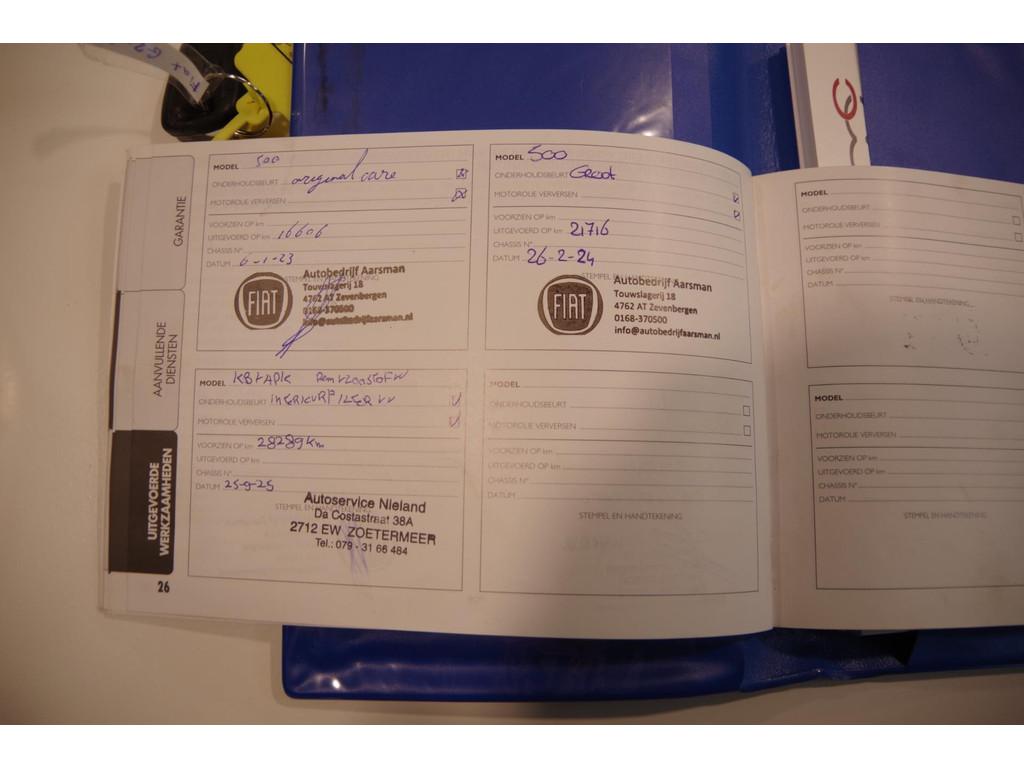 Fiat
GARANTIE
AANVULLENDE
DIENSTEN
UITGEVOERDE
WERKZAAMHEDEN
26
MODEL 500
ONDERHOUDSBEURT original care
MOTOROLIE VERVERSEN
VOORZIEN OP km
UITGEVOERD OP km 16606
CHASSIS N°
DATUM 6-1-23
STEMPEL EN HANDTEKENING
FIAT
Autobedrijf Aarsman
Touwslagerij 18
4762 AT Zevenbergen
0168-370500
info@autobedrijfaarsman.nl
MODEL 500
ONDERHOUDSBEURT Groot
MOTOROLIE VERVERSEN
VOORZIEN OP km
UITGEVOERD OP km 21716
CHASSIS N°
DATUM 26-2-24
STEMPEL EN HANDTEKENING
FIAT
Autobedrijf Aarsman
Touwslagerij 18
4762 AT Zevenbergen
0168-370500
info@autobedrijfaarsman.nl
MODEL KB+APK
ONDERHOUDSBEURT
MOTOROLIE VERVERSEN
VOORZIEN OP km 28289km
UITGEVOERD OP km
CHASSIS N°
DATUM 25-9-25
STEMPEL EN HANDTEKENING
Autoservice Nieland
Da Costastraat 38A
2712 EW ZOETERMEER
Tel.: 079 - 31 66 484
MODEL
ONDERHOUDSBEURT
MOTOROLIE VERVERSEN
VOORZIEN OP km
UITGEVOERD OP km
CHASSIS N°
DATUM
STEMPEL EN HANDTEKENING
MODEL
ONDERHOUDSBEURT
MOTOROLIE VERVERSEN
VOORZIEN OP km
UITGEVOERD OP km
CHASSIS N°
DATUM
STEMPEL EN HANDTEKENING
MODEL
ONDERHOUDSBEURT
MOTOROLIE VERVERSEN
VOORZIEN OP km
UITGEVOERD OP km
CHASSIS N°
DATUM
STEMPEL EN HANDTEKENING